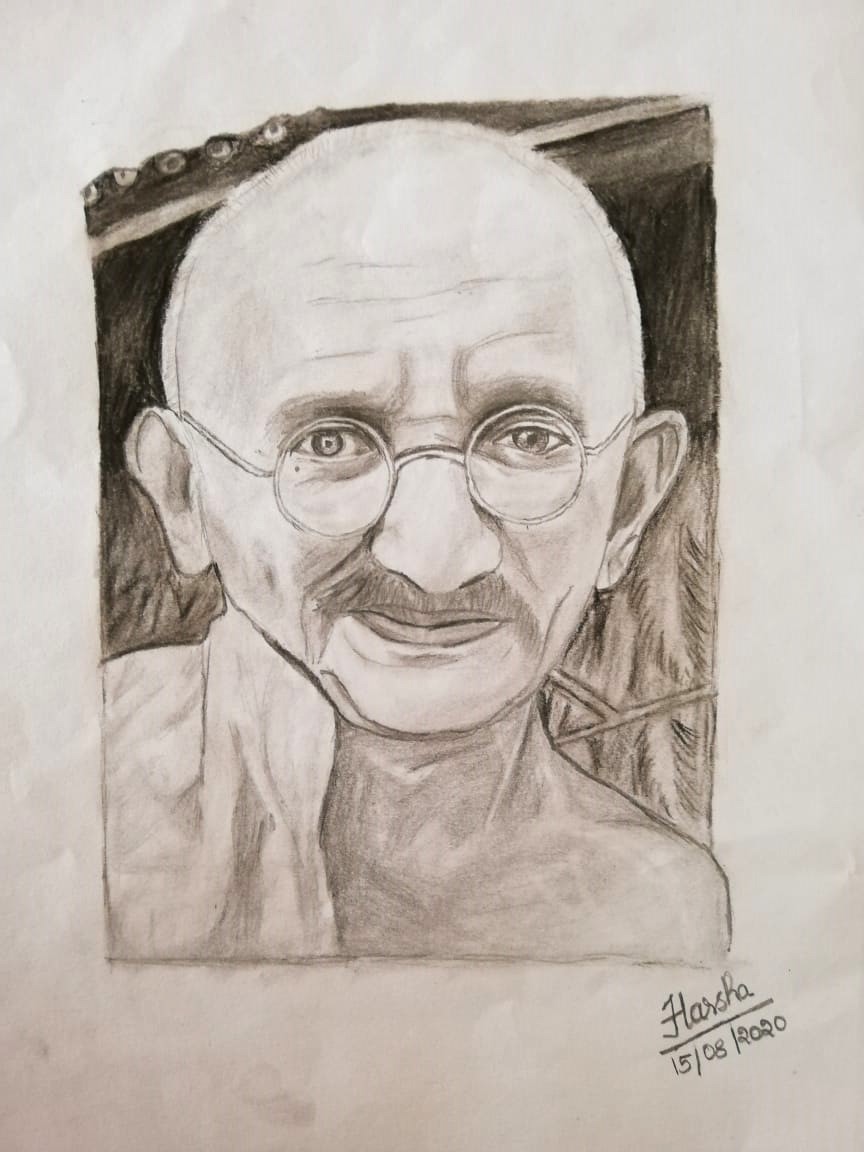 Harsha
15/08/2020